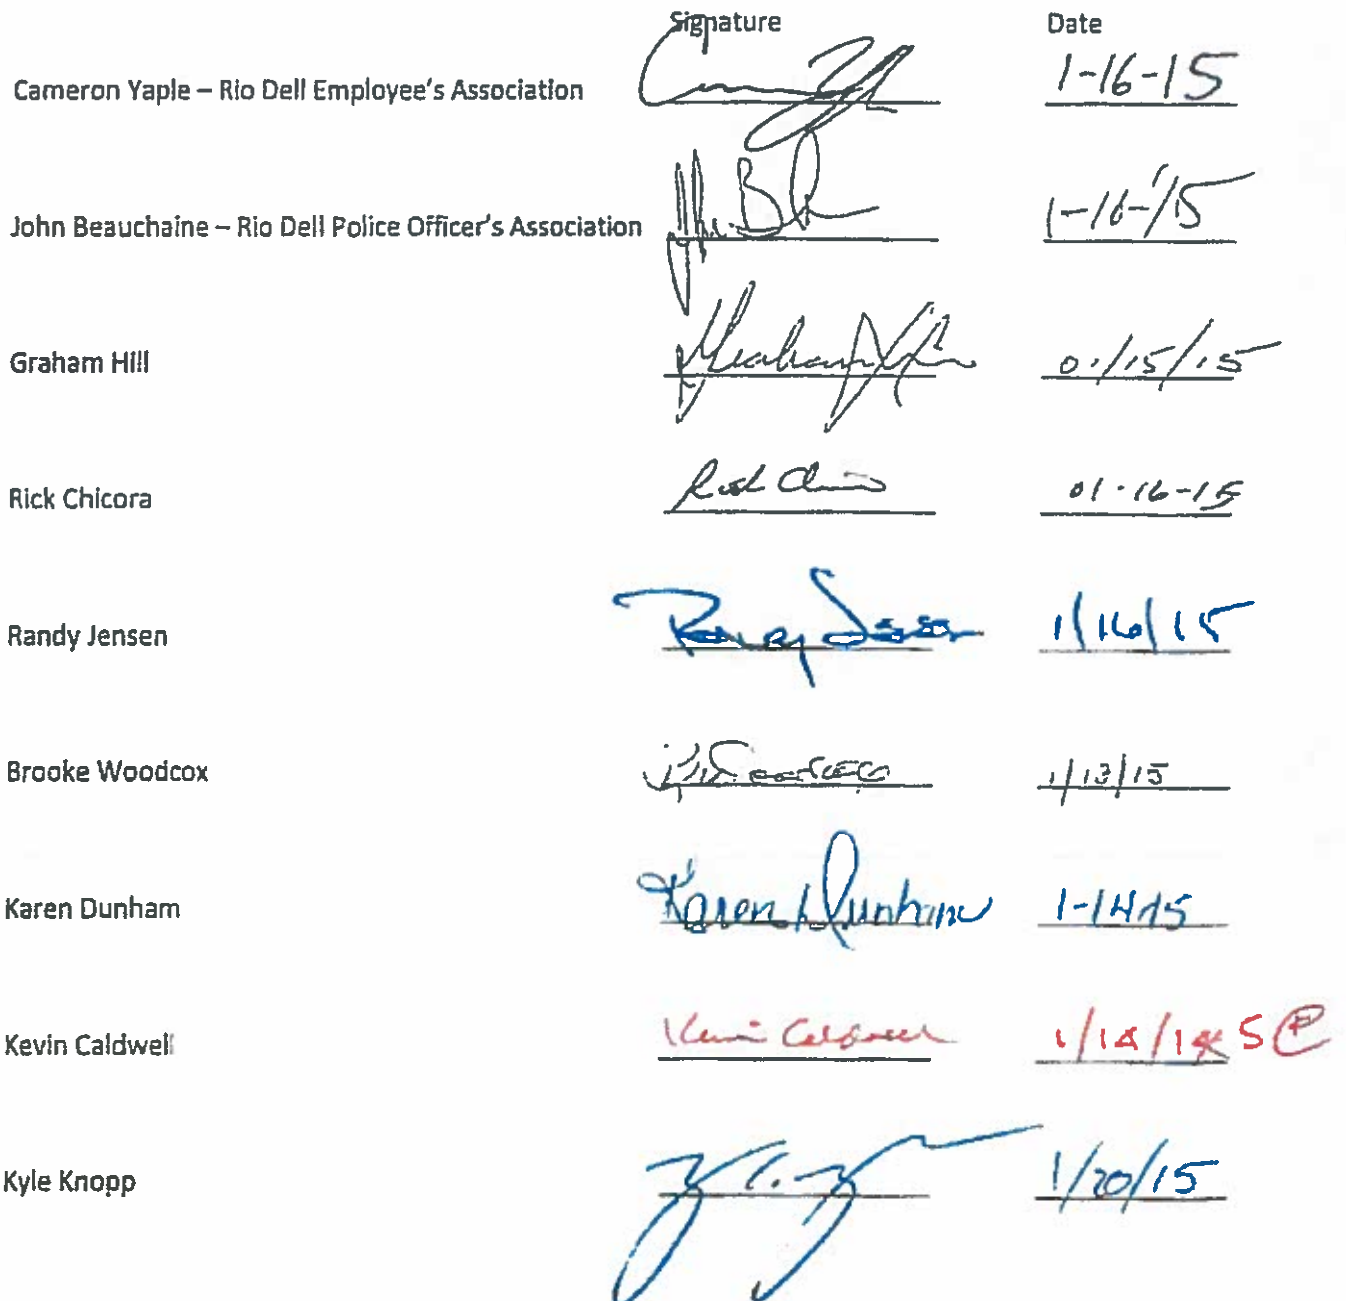 Signature Date
Cameron Yaple – Rio Dell Employee's Association 1-16-15
John Beauchaine – Rio Dell Police Officer's Association 1-16-15
Graham Hill Graham Hill 01/15/15
Rick Chicora Rick Chicora 01-16-15
Randy Jensen Randy Jensen 1/16/15
Brooke Woodcox B Woodcox 1/13/15
Karen Dunham Karen Dunham 1-14-15
Kevin Caldwell Kevin Caldwell 1/14/14 5
Kyle Knopp 1/20/15